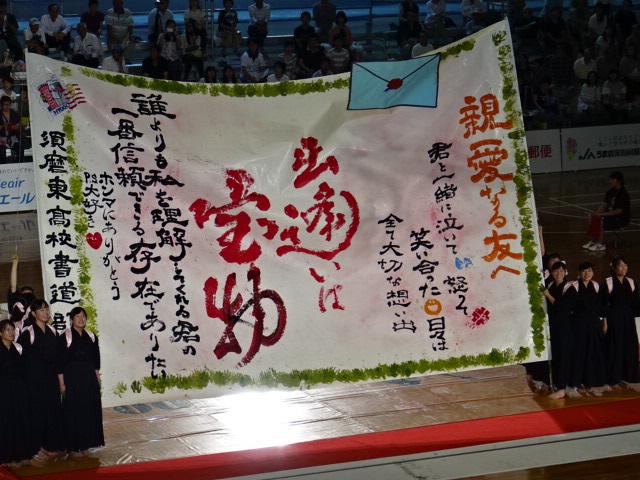 親愛なる友へ
君と一緒に泣いて怒って
笑い合った日は
全て大切な想い出
出逢いは
宝物
誰よりも私を理解してくれる君の
一番信頼できる存在でありたい
ホンマにありがとう
PS大好きだ
須磨東高校書道部
郵便
JA